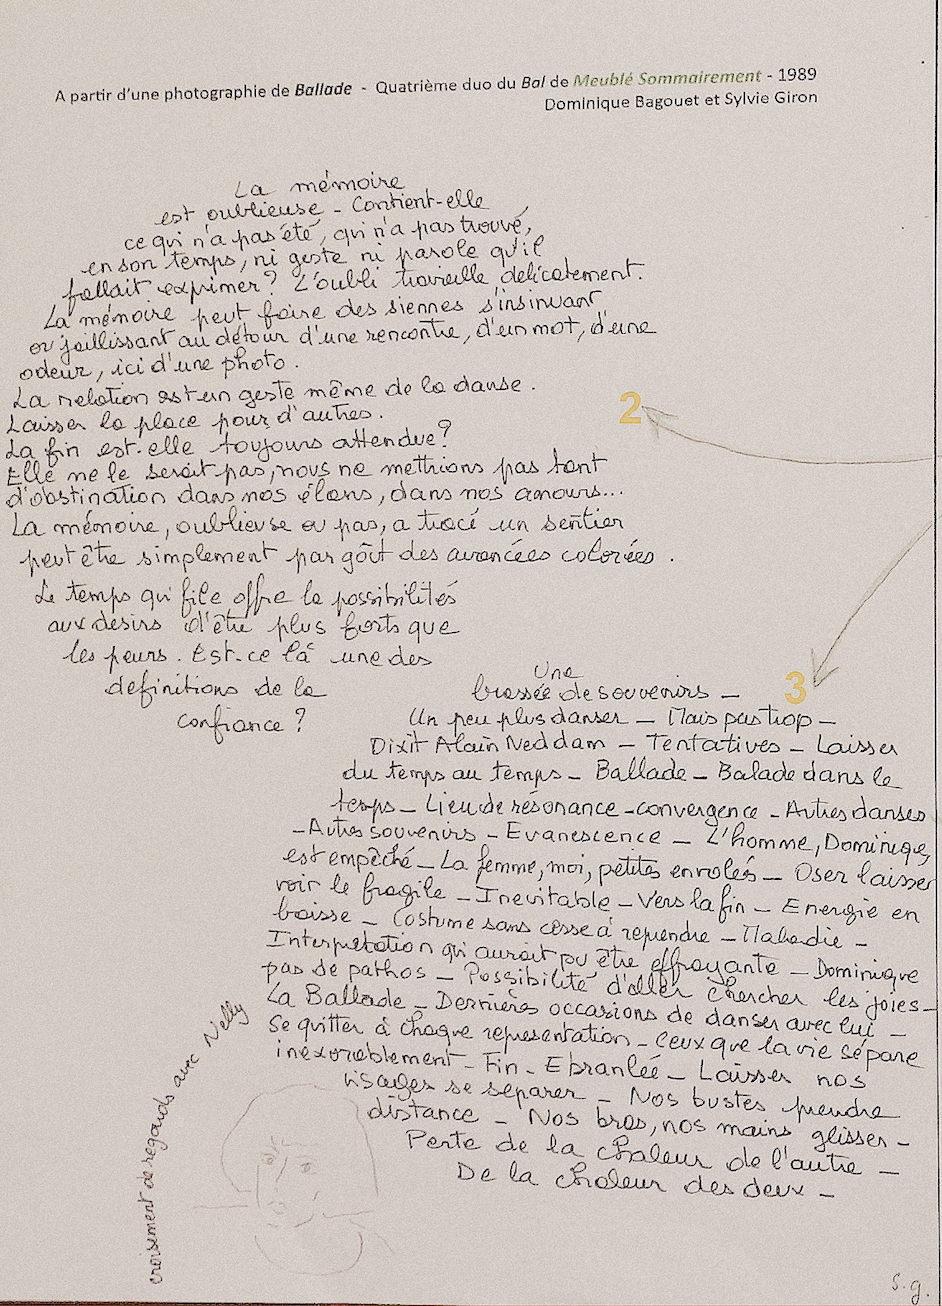 A partir d'une photographie de Ballade - Quatrième duo du Bal de Meublé Sommairement - 1989
Dominique Bagouet et Sylvie Giron
La mémoire
est oublieuse - Contient-elle
ce qui n'a pas été, qui n'a pas trouvé,
en son temps, ni geste ni parole qu'il
fallait exprimer ? L'oubli travaille délicatement.
La mémoire peut faire des siennes s'insinuant
ou jaillissant au détour d'une rencontre, d'un mot, d'une
odeur, ici d'une photo.
La relation est un geste même de la danse.
Laisser la place pour d'autres.
La fin est-elle toujours attendue ?
Elle ne le serait pas, nous ne mettrions pas tant
d'obstination dans nos élans, dans nos amours...
La mémoire, oublieuse ou pas, a tracé un sentier
peut être simplement par goût des avancées colorées.
Le temps qui file offre la possibilités
aux désirs d'être plus forts que
les peurs. Est-ce là une des
définitions de la
confiance ?
2
3
Une
brassée de souvenirs -
Un peu plus danser - Mais pas trop -
Dixit Alain Neddam - Tentatives - Laisser
du temps au temps - Ballade - Balade dans le
temps - Lieu de résonance - convergence - Autres danses
- Autres souvenirs - Evanescence - L'homme, Dominique,
est empêché - La femme, moi, petites envolés - Oser laisser
voir le fragile - Inevitable - Vers la fin - Energie en
baisse - Costume sans cesse à reprendre - Maladie -
Interprétation qui aurait pu être effrayante - Dominique
pas de pathos - Possibilité d'aller chercher les joies -
La Ballade - Dernières occasions de danser avec lui -
Se quitter à chaque représentation - Ceux que la vie sépare
inexorablement - Fin - Ebranlée - Laisser nos
visages se séparer - Nos bustes prendre
distance - Nos bras, nos mains glisser -
Perte de la chaleur de l'autre -
De la chaleur des deux -
croisement de regards avec Nelly
S.g.